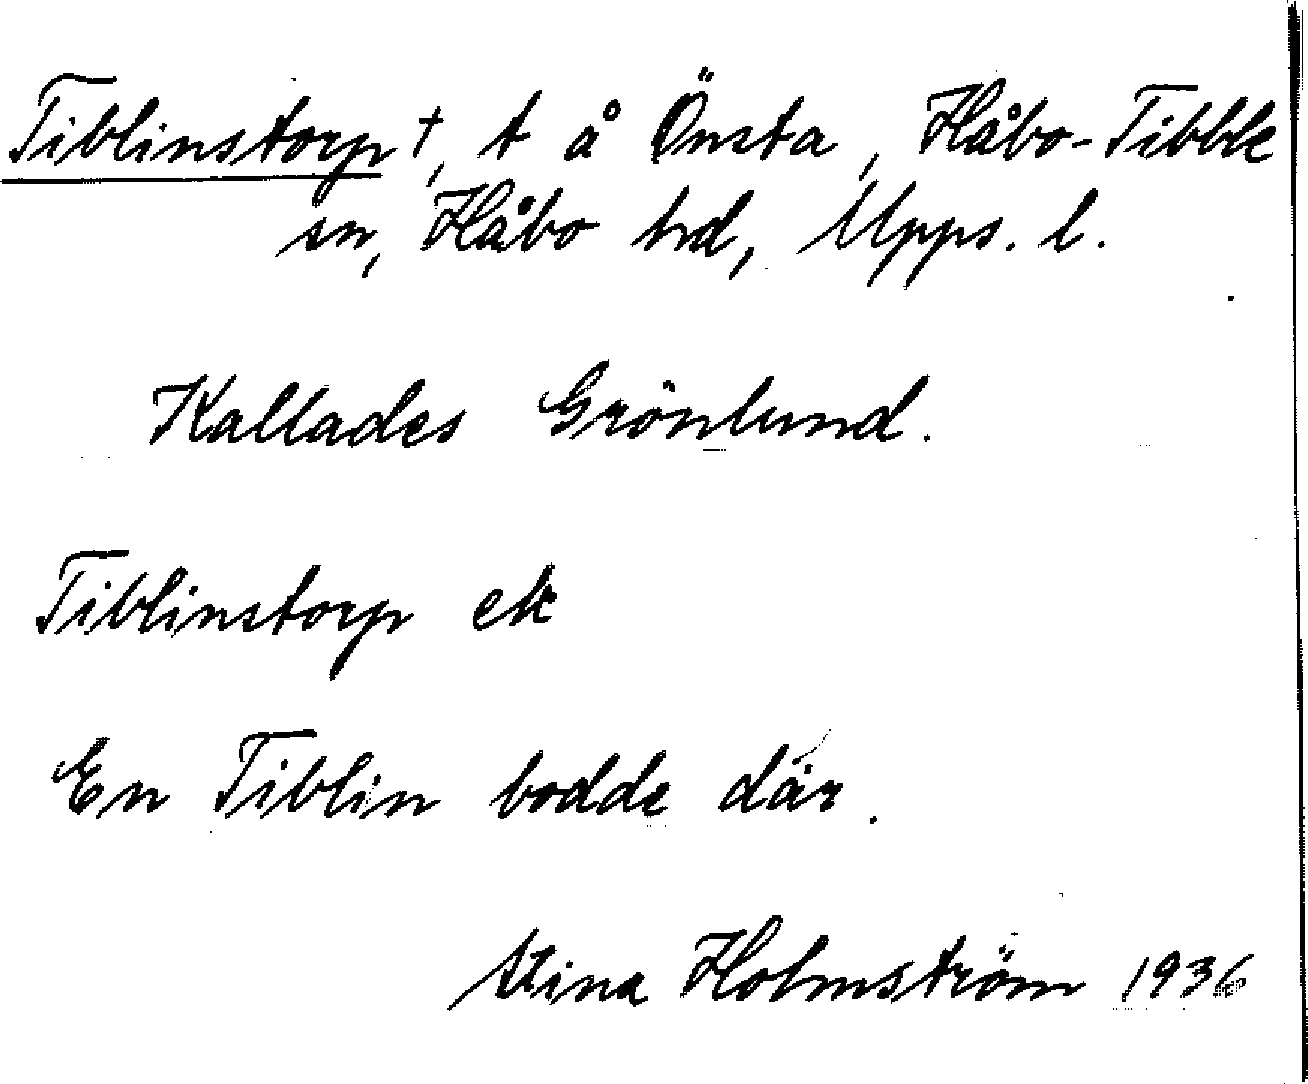 Tiblinstorp †, t å Önsta, Håbo-Tibble
sn, Håbo hd, Upps. l.
Kallades Grönlund.
Tiblinstorp ek
En Tiblin bodde där.
Stina Holmström 1936